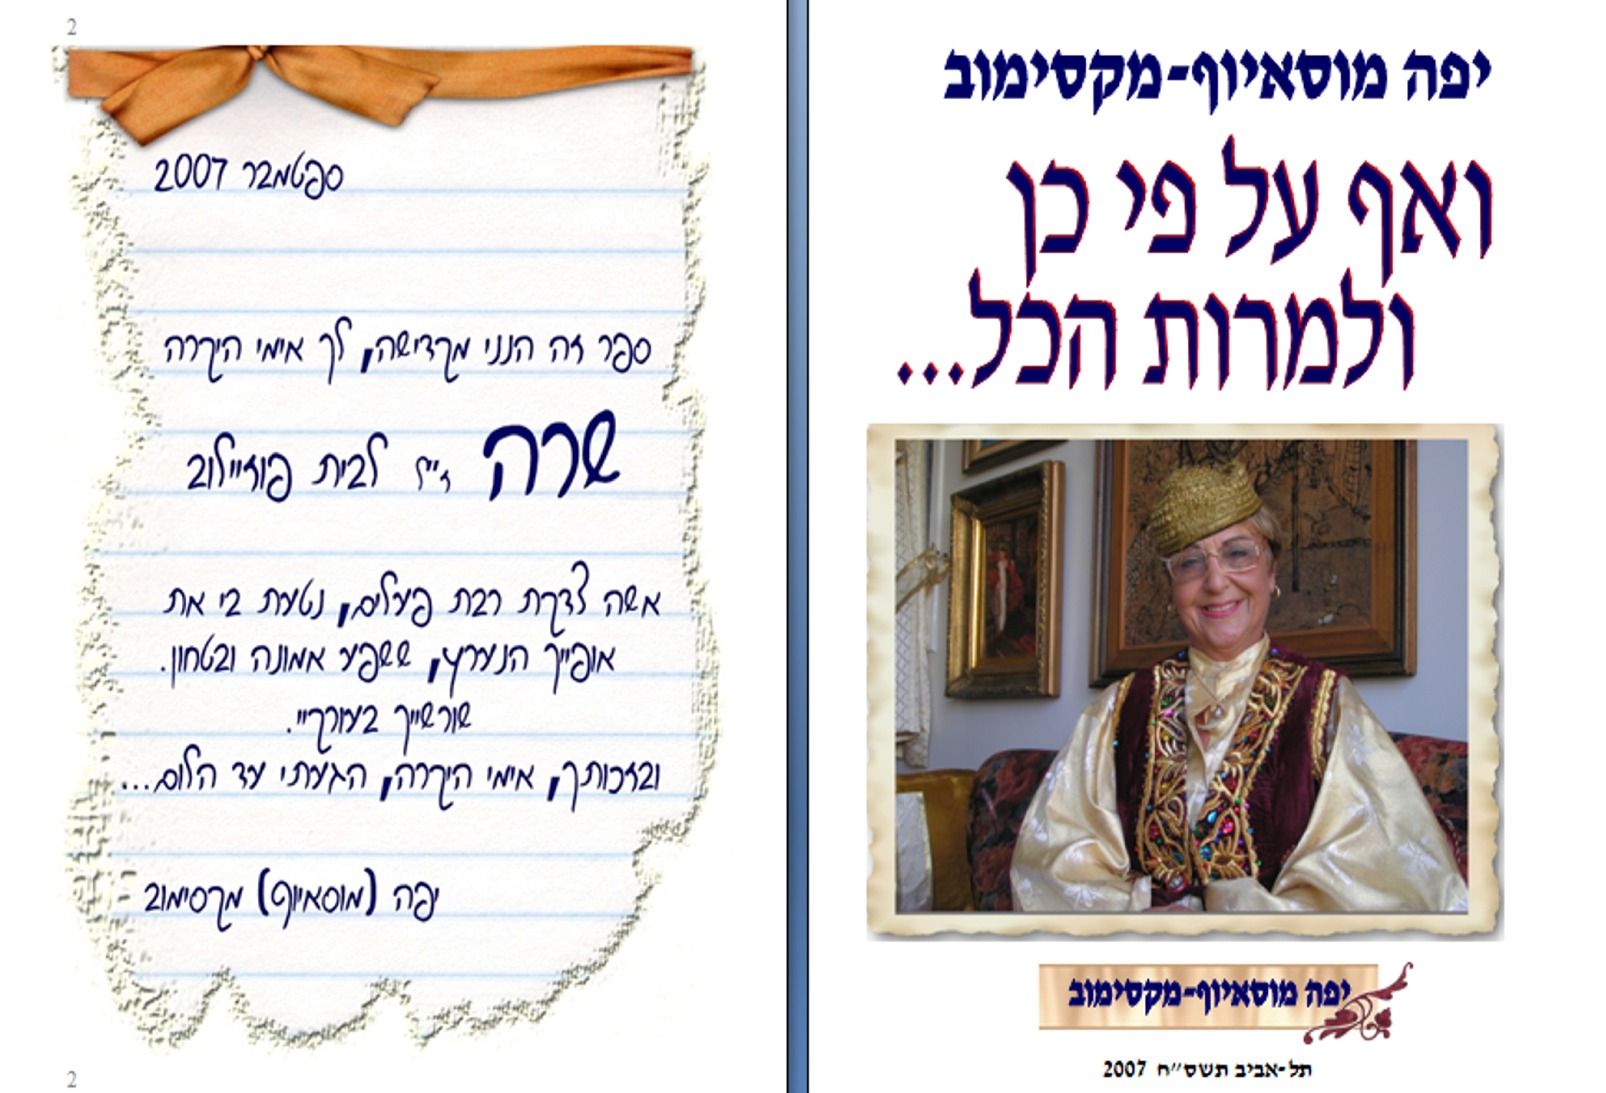 יפה מוסאיוף-מקסימוב
ואף על פי כן
ולמרות הכל...
יפה מוסאיוף-מקסימוב
תל-אביב תשס״ח 2007
2
ספטמבר 2007
ספר זה הנני מקדישה, לך אימי היקרה
שרה ז״ל לבית פוזיילוב
אשה צדקת רבת פעלים, נטעת בי את
אופייך הנערץ, ששפע אמונה ובטחון.
שורשייך בעורקיי.
ובזכותך, אימי היקרה, הגעתי עד הלום...
יפה (מוסאיוף) מקסימוב
2